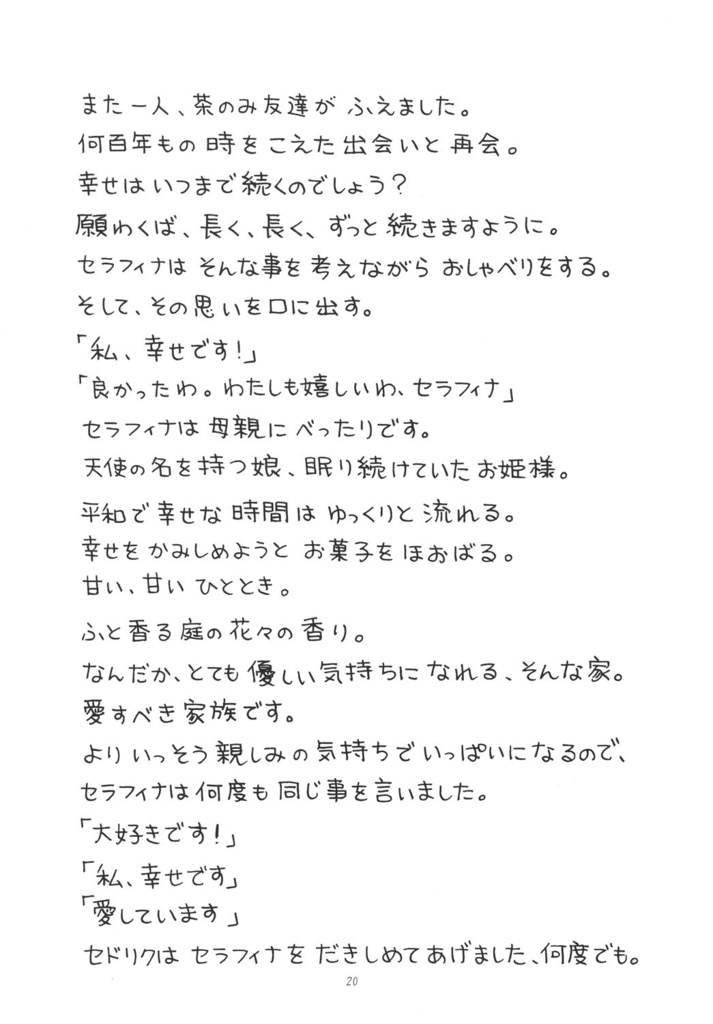 また一人、茶のみ友達が ふえました。
何百年もの 時を こえた 出会いと 再会。
幸せは いつまで 続くのでしょう？
願わくば、長く、長く、ずっと 続きますように。
セラフィナは そんな事を 考えながら おしゃべりをする。
そして、その思いを口に出す。
「私、幸せです！」
「良かったわ。わたしも嬉しいわ、セラフィナ」
セラフィナは 母親に べったりです。
天使の名を持つ娘、眠り続けていたお姫様。
平和で 幸せな 時間は ゆっくりと 流れる。
幸せを かみしめようと お菓子を ほおばる。
甘い、甘い ひととき。
ふと香る庭の花々の香り。
なんだか、とても 優しい気持ちに なれる、そんな家。
愛すべき 家族です。
より いっそう 親しみの気持ちで いっぱいになるので、
セラフィナは 何度も 同じ事を言いました。
「大好きです！」
「私、幸せです」
「愛しています」
セドリクは セラフィナを だきしめてあげました、何度でも。
20